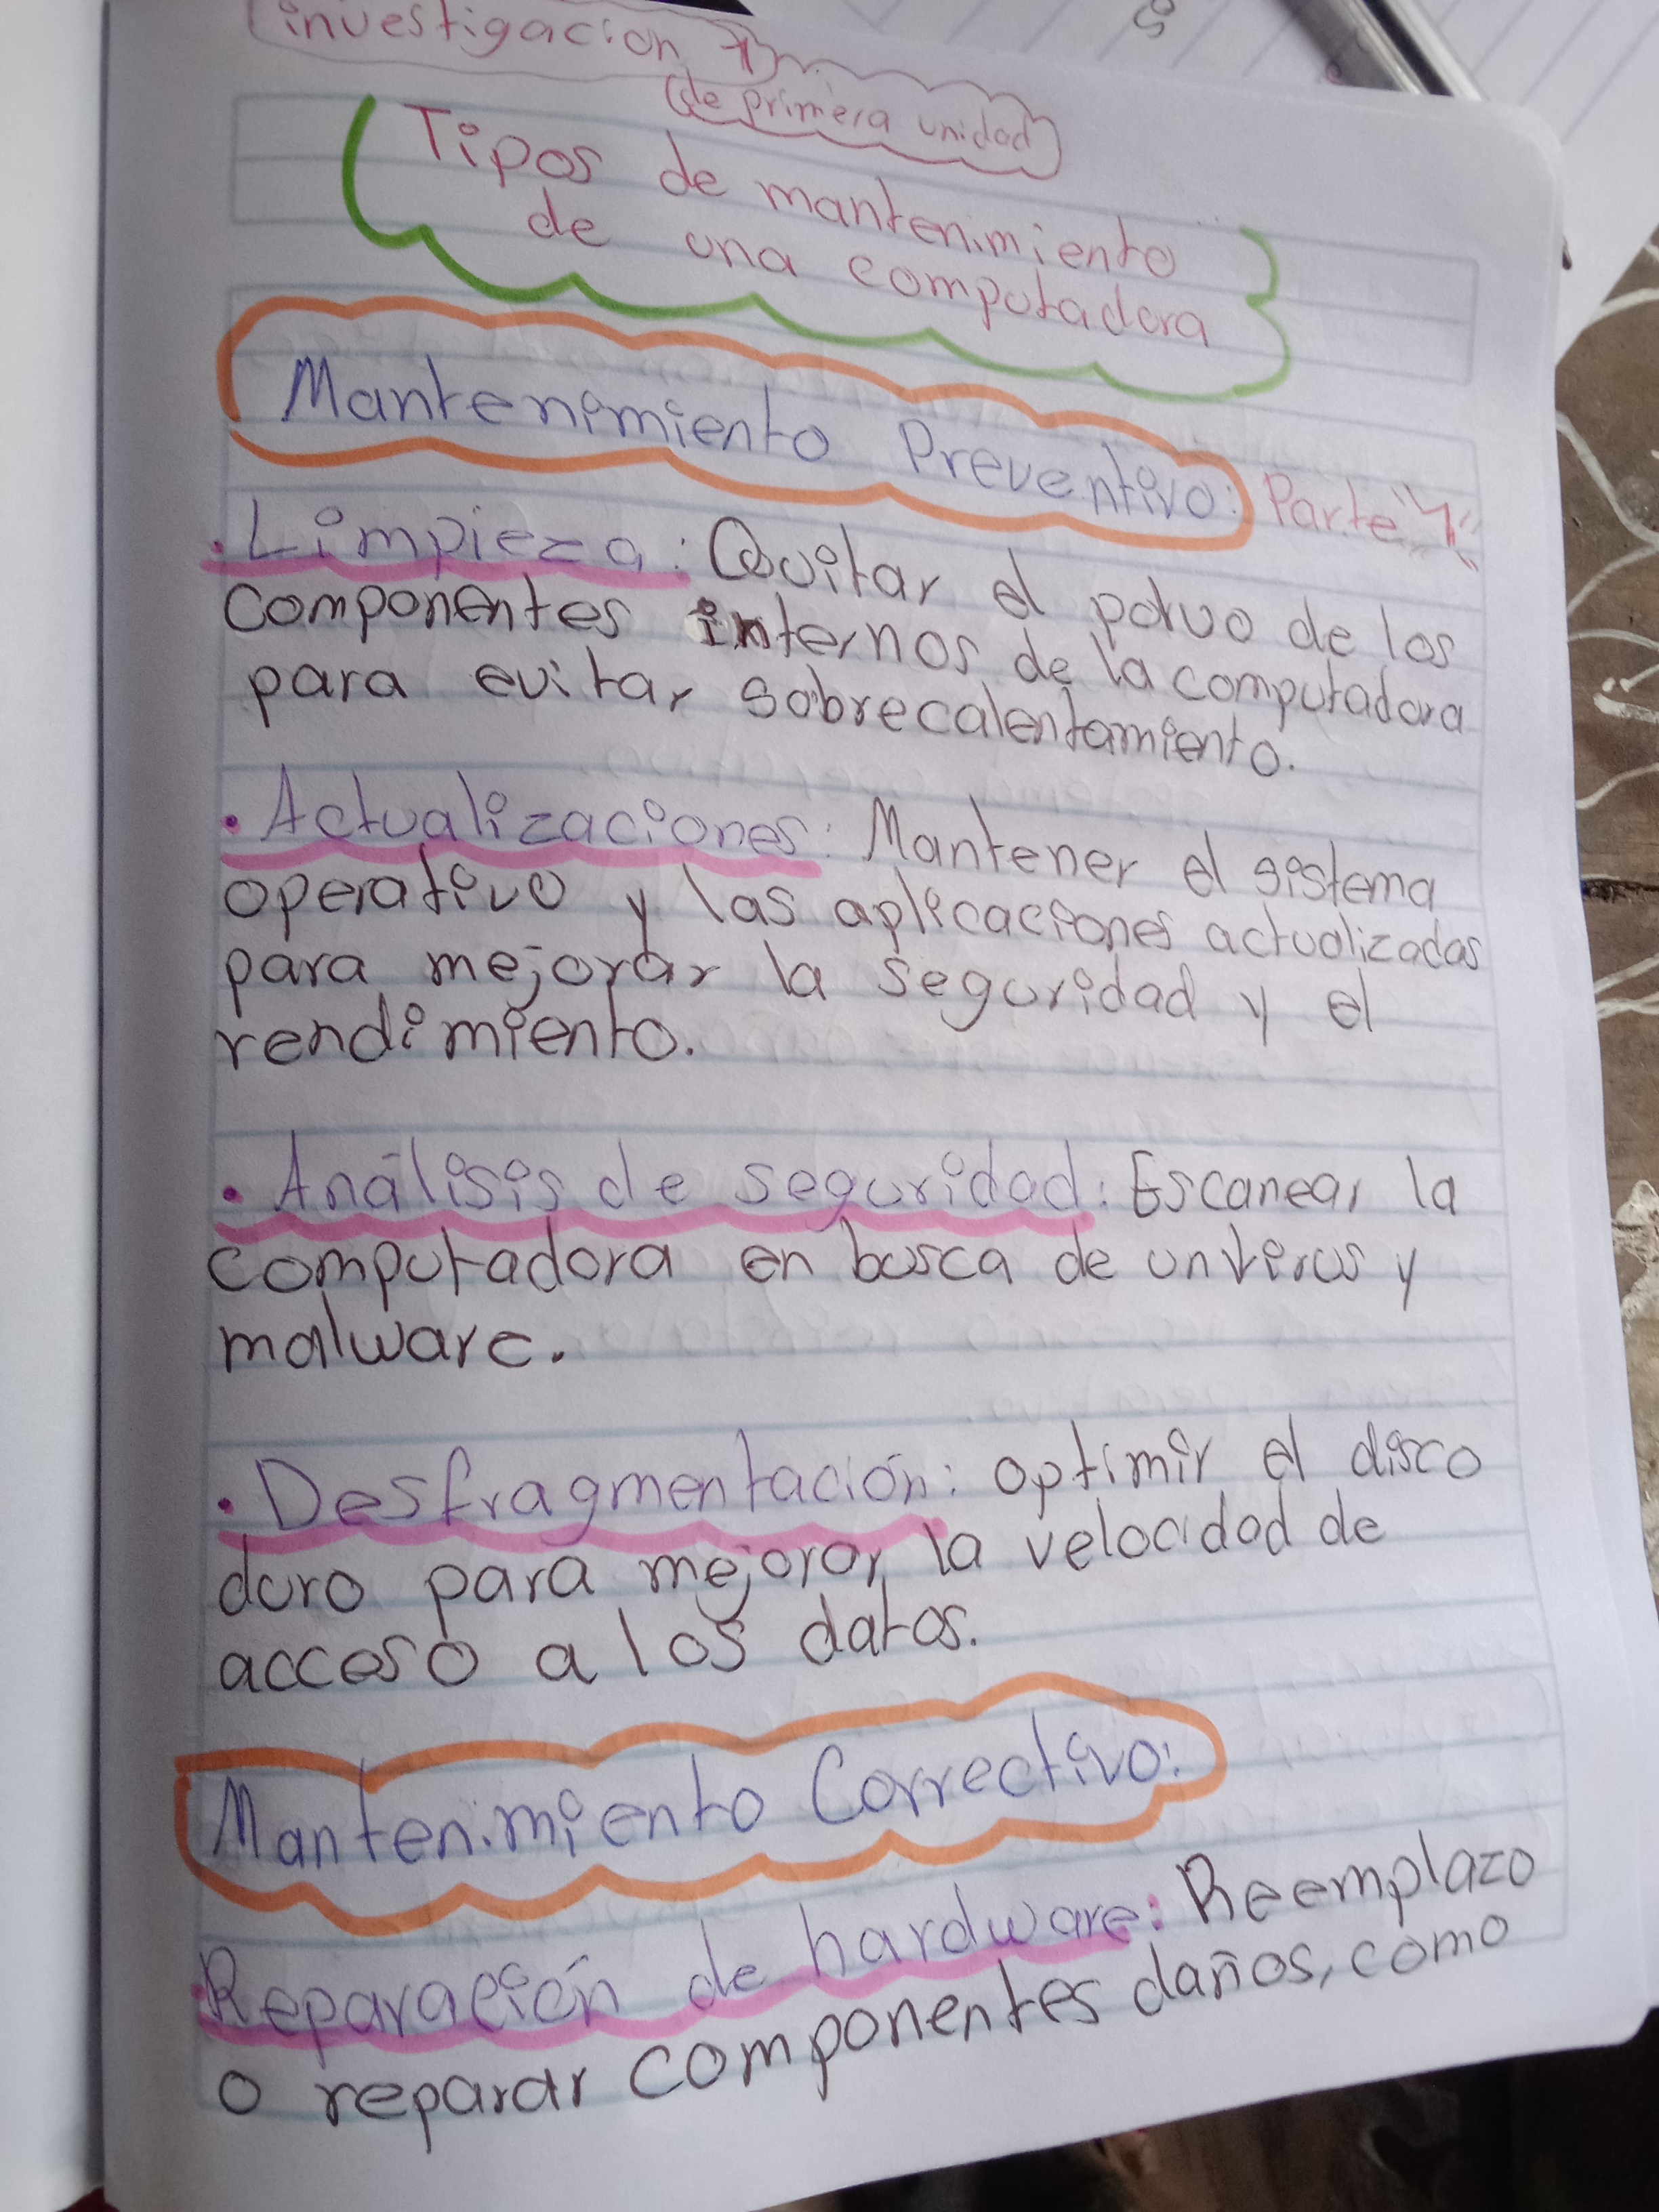 investigacion 1
de primera unidad
Tipos de mantenimiento
de una computadora
Mantenimiento Preventivo: Parte "1"
• Limpieza: Quitar el polvo de los
componentes internos de la computadora
para evitar sobrecalentamiento.
• Actualizaciones: Mantener el sistema
operativo y las aplicaciones actualizadas
para mejorar la seguridad y el
rendimiento.
• Análisis de seguridad: Escanear la
computadora en busca de un virus y
malware.
• Desfragmentación: optimir el disco
duro para mejorar la velocidad de
acceso a los datos.
Mantenimiento Correctivo:
• Reparación de hardware: Reemplazo
o reparar componentes daños, como